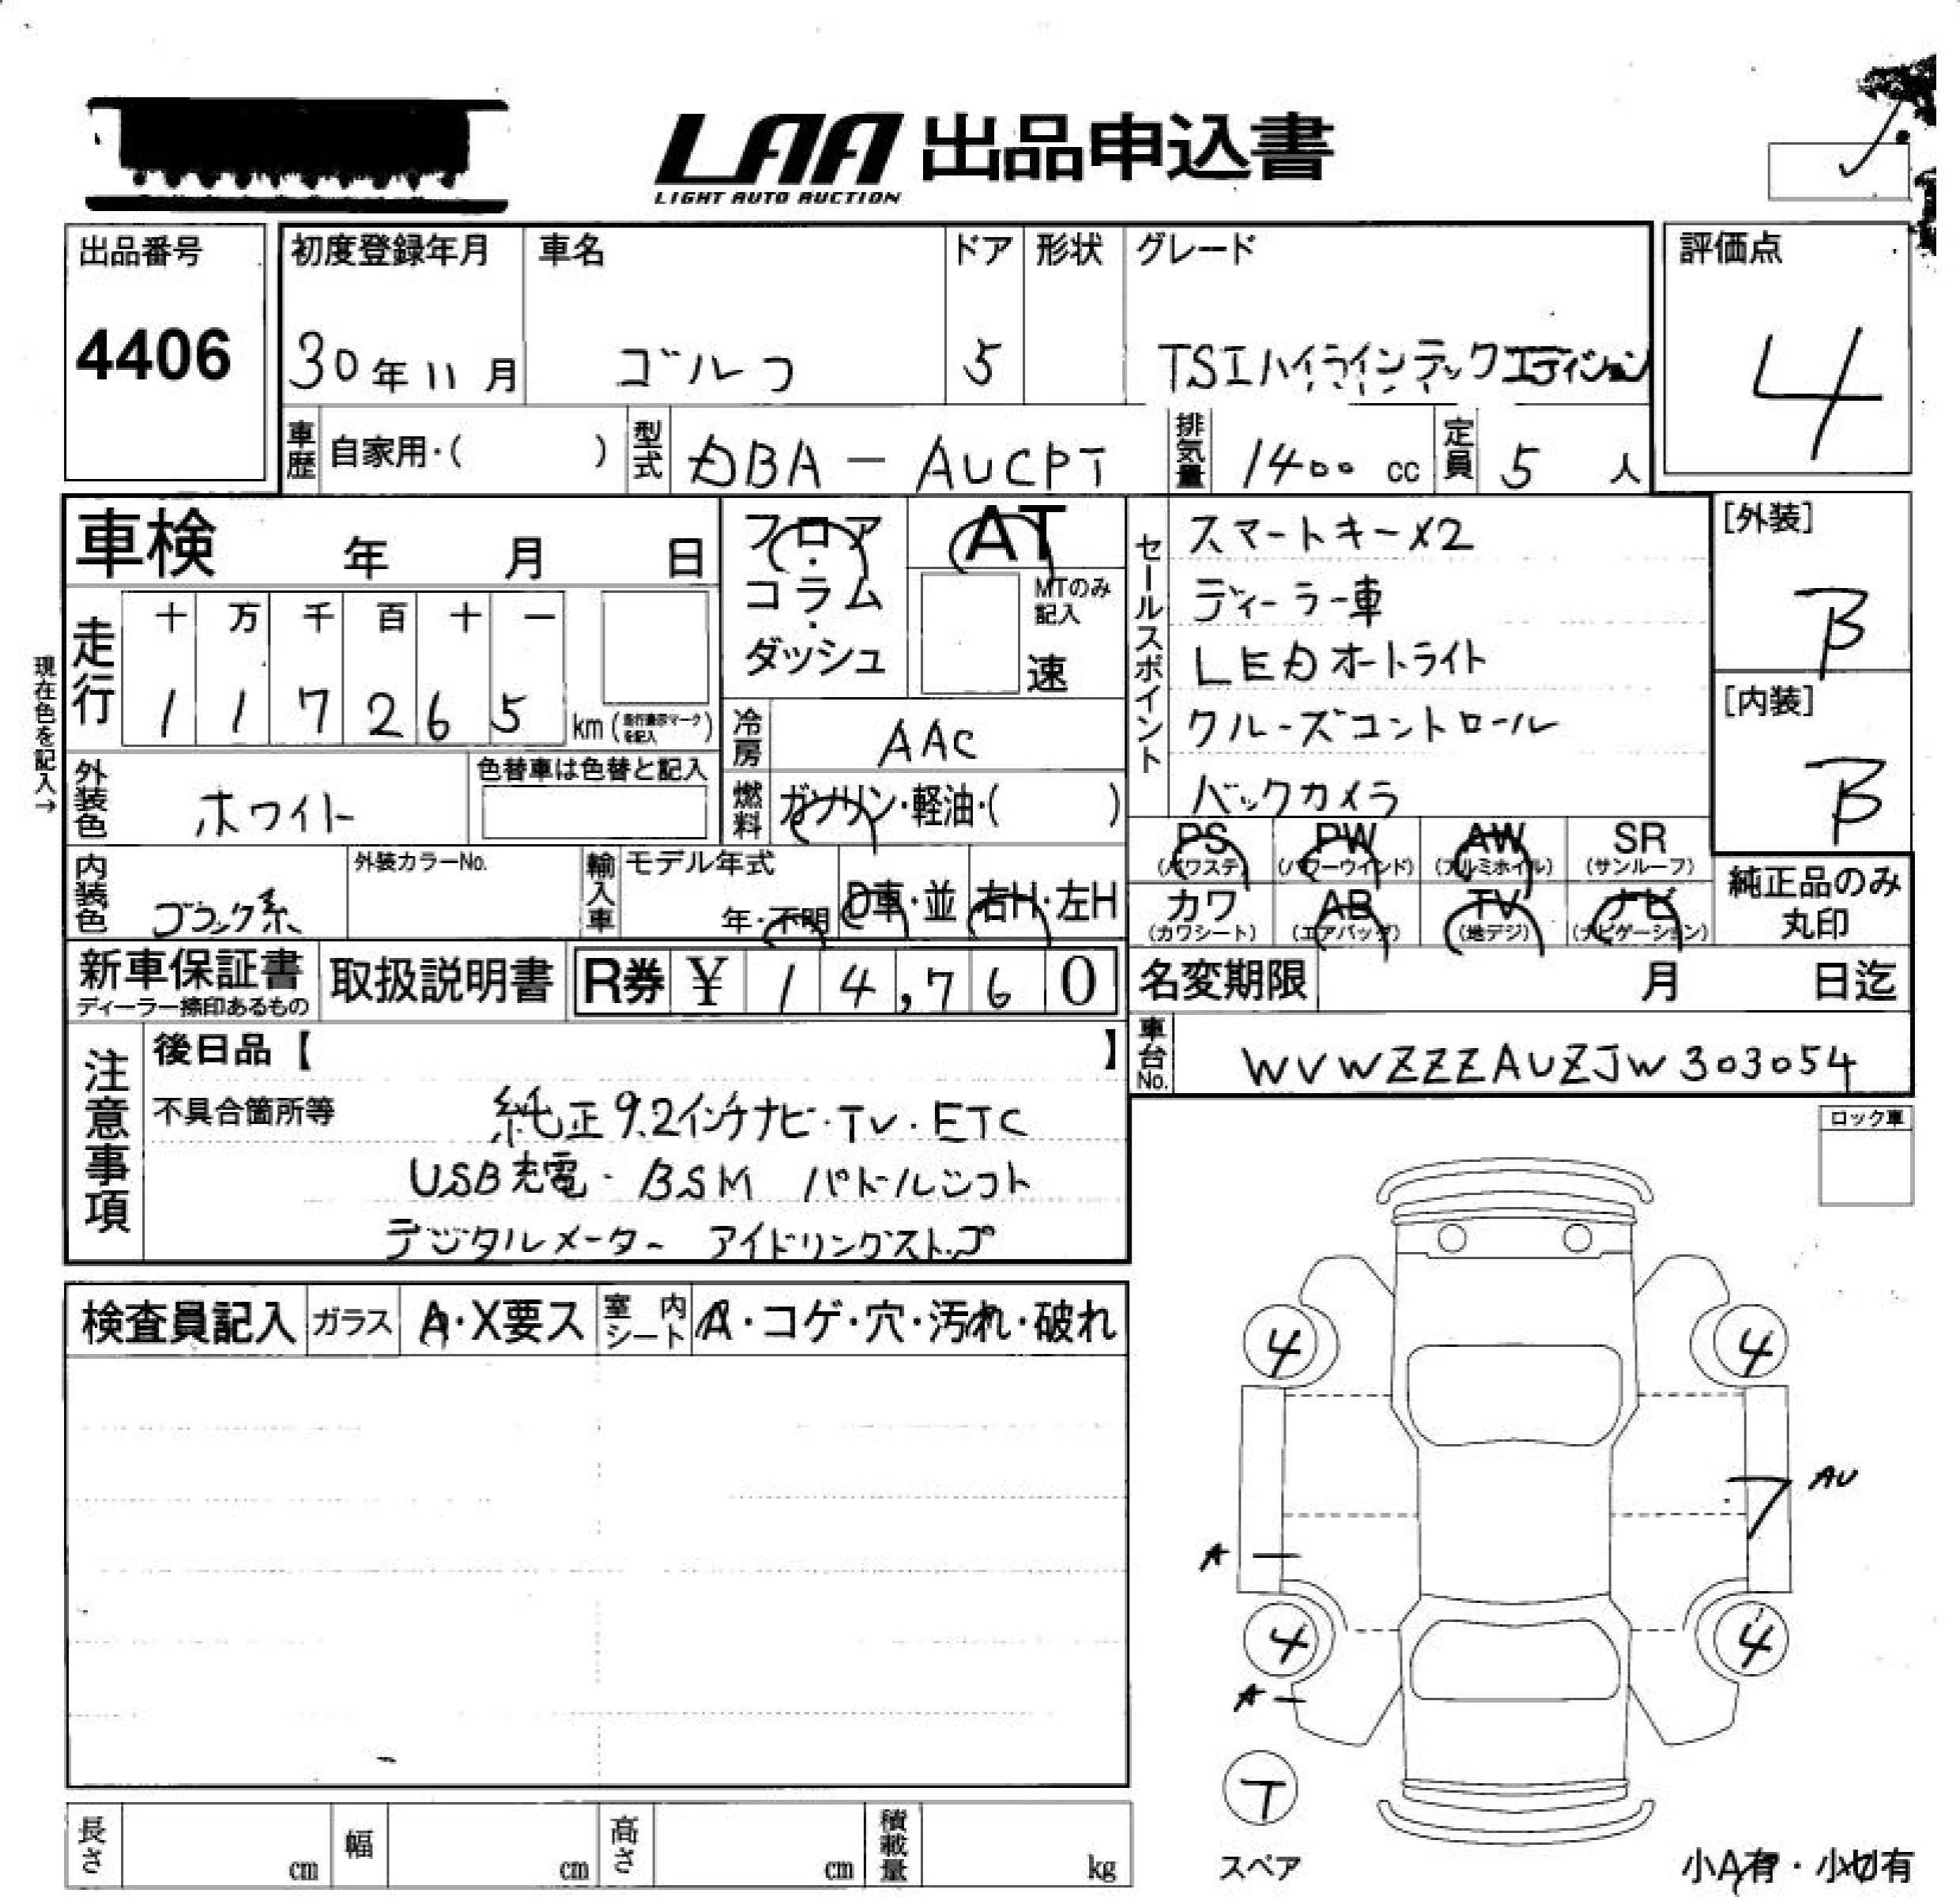 LAA 出品申込書
LIGHT AUTO AUCTION
出品番号
4406
初度登録年月 車名 ドア 形状 グレード
30年11月 ゴルフ 5 TSIハイラインテックエディション
評価点
4
車歴 自家用・( ) 型式 DBA-AUCPT 排気量 1400 cc 定員 5 人
車検 年 月 日
フロア・コラム・ダッシュ
AT
MTのみ記入
速
セールスポイント
スマートキーX2
ディーラー車
LEDオートライト
クルーズコントロール
バックカメラ
[外装]
B
[内装]
B
現在色を記入→
走行 十 万 千 百 十 一
1 1 7 2 6 5 km (走行表示マークを記入)
冷房 AAC
外装色 ホワイト 色替車は色替と記入
燃料 ガソリン・軽油・( )
PS (パワステ) PW (パワーウインド) AW (アルミホイル) SR (サンルーフ)
カワ (カワシート) AB (エアバッグ) TV (地デジ) ナビ (ナビゲーション)
純正品のみ丸印
内装色 ブラック系 外装カラーNo. 輸入車 モデル年式 年・不明 D車・並 右H・左H
新車保証書 ディーラー捺印あるもの 取扱説明書 R券 ¥ 14,760
名変期限 月 日迄
車台No. WVWZZZAUZJW303054
注意事項
後日品【 】
不具合箇所等 純正9.2インチナビ・TV・ETC
USB充電・BSM パドルシフト
デジタルメーター アイドリングストップ
ロック車
検査員記入 ガラス A・X要ス 室内シート A・コゲ・穴・汚れ・破れ
4 4
AU
A
4 4
A
T
スペア
小A有・小U有
長さ cm 幅 cm 高さ cm 積載量 kg